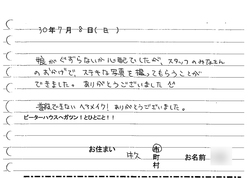 30年7月8日(日)
娘がぐずらないか心配でしたが、スタッフのみなさん
のおかげで ステキな写真を撮ってもらうことが
できました。ありがとうございました
普段できない ヘアメイク! ありがとうございました。
ピーターハウスへガツン!とひとこと!!
お住まい 牛久 市町村 お名前